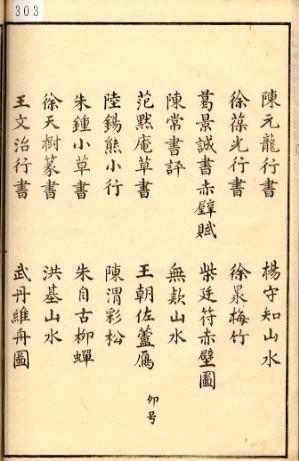 303
陳元龍行書　楊守知山水
徐葆光行書　徐泉梅竹
葛景誠書赤壁賦　柴廷符赤壁圖
陳常書評　無款山水
范默庵草書　王朝佐蘆鴈
陸錫熊小行　陳渭彩松
朱鍾小草書　朱自古柳蟬
徐天樹篆書　洪基山水
王文治行書　武丹維舟圖
卯号